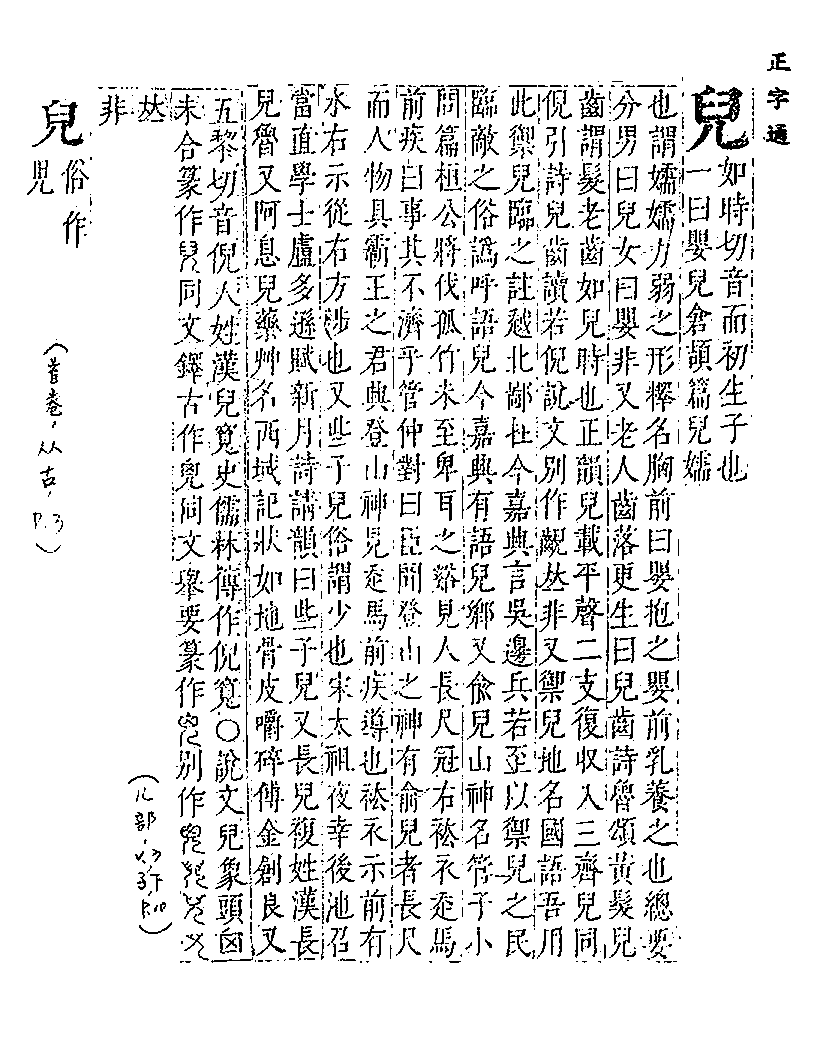 正字通
兒
如時切音而初生子也
一曰嬰兒倉頡篇兒嬬
也謂嬬嬬力弱之形釋名胸前曰嬰抱之嬰前乳養之也總要
分男曰兒女曰嬰非又老人齒落更生曰兒齒詩魯頌黃髮兒
齒謂髮老齒如兒時也正韻兒載平聲二支復收入三齊兒同
倪引詩兒齒讀若倪說文別作齯𠀤非又禦兒地名國語吾用
此禦兒臨之註越北鄙在今嘉興言吳邊兵若至以禦兒之民
臨敵之俗譌呼語兒今嘉興有語兒鄉又俞兒山神名管子小
問篇桓公將伐孤竹未至卑耳之谿見人長尺冠右袪衣走馬
前疾曰事其不濟乎管仲對曰臣聞登山之神有俞兒者長尺
而人物具霸王之君興登山神見走馬前疾導也袪衣示前有
水右示從右方涉也又些子兒俗謂少也宋太祖夜幸後池召
當直學士盧多遜賦新月詩請韻曰些子兒又長兒複姓漢長
兒魯又阿息兒藥艸名西域記狀如地骨皮嚼碎傅金創良又
五黎切音倪人姓漢兒寬史儒林傳作倪寬○說文兒象頭囟
未合篆作同文鐸古作同文舉要篆作別作
𠀤非
兒
俗作
児
(首卷，从古，P.3)
(儿部，P.10)